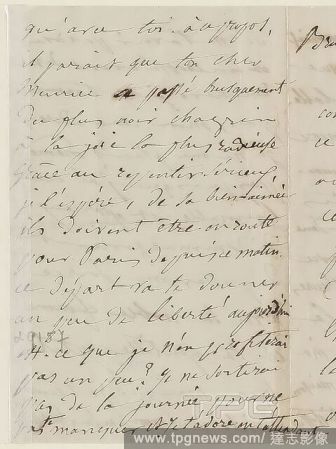 qu'avec toi. à propos,
il paraît que ton cher
Maurice a passé brusquement
du plus noir chagrin
à la joie la plus radieuse
grâce au repentir sérieux
je l'espère, de sa bien aimée
ils doivent être en route
pour Paris depuis ce matin.
ce départ va te donner
un peu de liberté aujourd'hui
est-ce que je n'en profiterai
pas un peu? Je ne sortirai
pas de la journée pour ne
pas te manquer et je t'adore en t'attendant
Bru
co
ce
TPG
www.tpgnews.com/達志影像